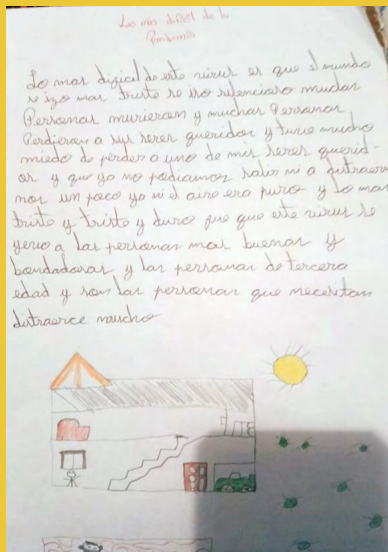 Lo mas dificil de la
Pandemia
Lo mas dificil de este virus es que el mundo
se izo mas triste se iso silencioso muchas
Personas murieron y muchas Personas
Perdieron a sus seres queridos y tuve mucho
miedo de perder a uno de mis seres querid-
os y que ya no podiamos salir ni a distraer
nos un poco ya ni el aire era puro y lo mas
triste y triste y duro fue que este virus se
yevo a las personas mas buenas y
bondadosas y las personas de tercera
edad y son las personas que necesitan
distraerce mucho